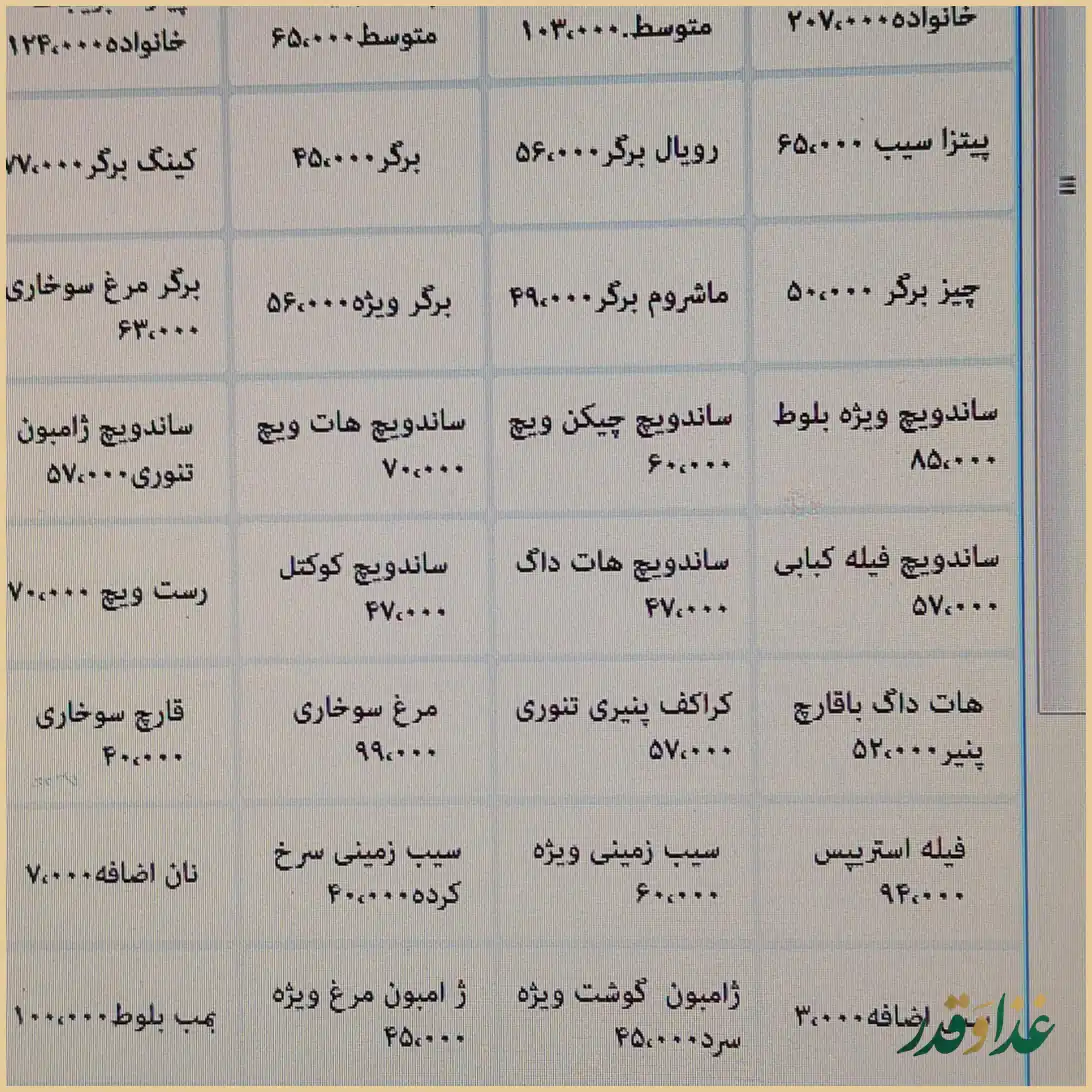 خانواده۲۰۷،۰۰۰
متوسط.۱۰۳،۰۰۰
متوسط۶۵،۰۰۰
خانواده۱۲۴،۰۰۰
پیتزا سیب ۶۵،۰۰۰
رویال برگر۵۶،۰۰۰
برگر۴۵،۰۰۰
کینگ برگر۷۷،۰۰۰
چیز برگر ۵۰،۰۰۰
ماشروم برگر۴۹،۰۰۰
برگر ویژه۵۶،۰۰۰
برگر مرغ سوخاری
۶۳،۰۰۰
ساندویچ ویژه بلوط
۸۵،۰۰۰
ساندویچ چیکن ویچ
۶۰،۰۰۰
ساندویچ هات ویچ
۷۰،۰۰۰
ساندویچ ژامبون
تنوری۵۷،۰۰۰
ساندویچ فیله کبابی
۵۷،۰۰۰
ساندویچ هات داگ
۴۷،۰۰۰
ساندویچ کوکتل
۴۷،۰۰۰
رست ویچ ۷۰،۰۰۰
هات داگ باقارچ
پنیر۵۲،۰۰۰
کراکف پنیری تنوری
۵۷،۰۰۰
مرغ سوخاری
۹۹،۰۰۰
قارچ سوخاری
۴۰،۰۰۰
فیله استریپس
۹۴،۰۰۰
سیب زمینی ویژه
۶۰،۰۰۰
سیب زمینی سرخ
کرده۴۰،۰۰۰
نان اضافه۷،۰۰۰
اضافه۳،۰۰۰
ژامبون گوشت ویژه
سرد۴۵،۰۰۰
ژ امبون مرغ ویژه
۴۵،۰۰۰
بمب بلوط۱۰۰،۰۰۰
غذا و قدر